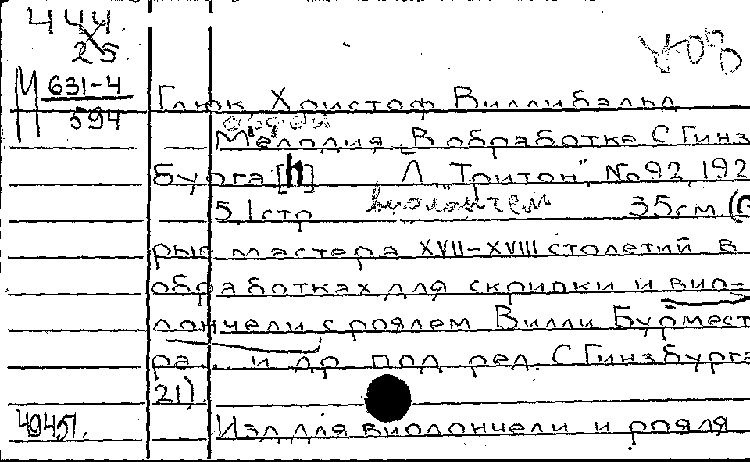 444
25
М 631-4
594
Глюк Христоф Виллибальд
Мелодия. В обработке С Гинз
бурга [Н] Л. "Тритон", No 92, 192
5, 1 стр виолончем 35 см (С
рые мастера XVII-XVIII столетий в
обработках для скрипки и вио=
лончели с роялем Вилли Бурмест
ра... и др под ред. С Гинзбурга
21)
Изд для виолончели и рояля